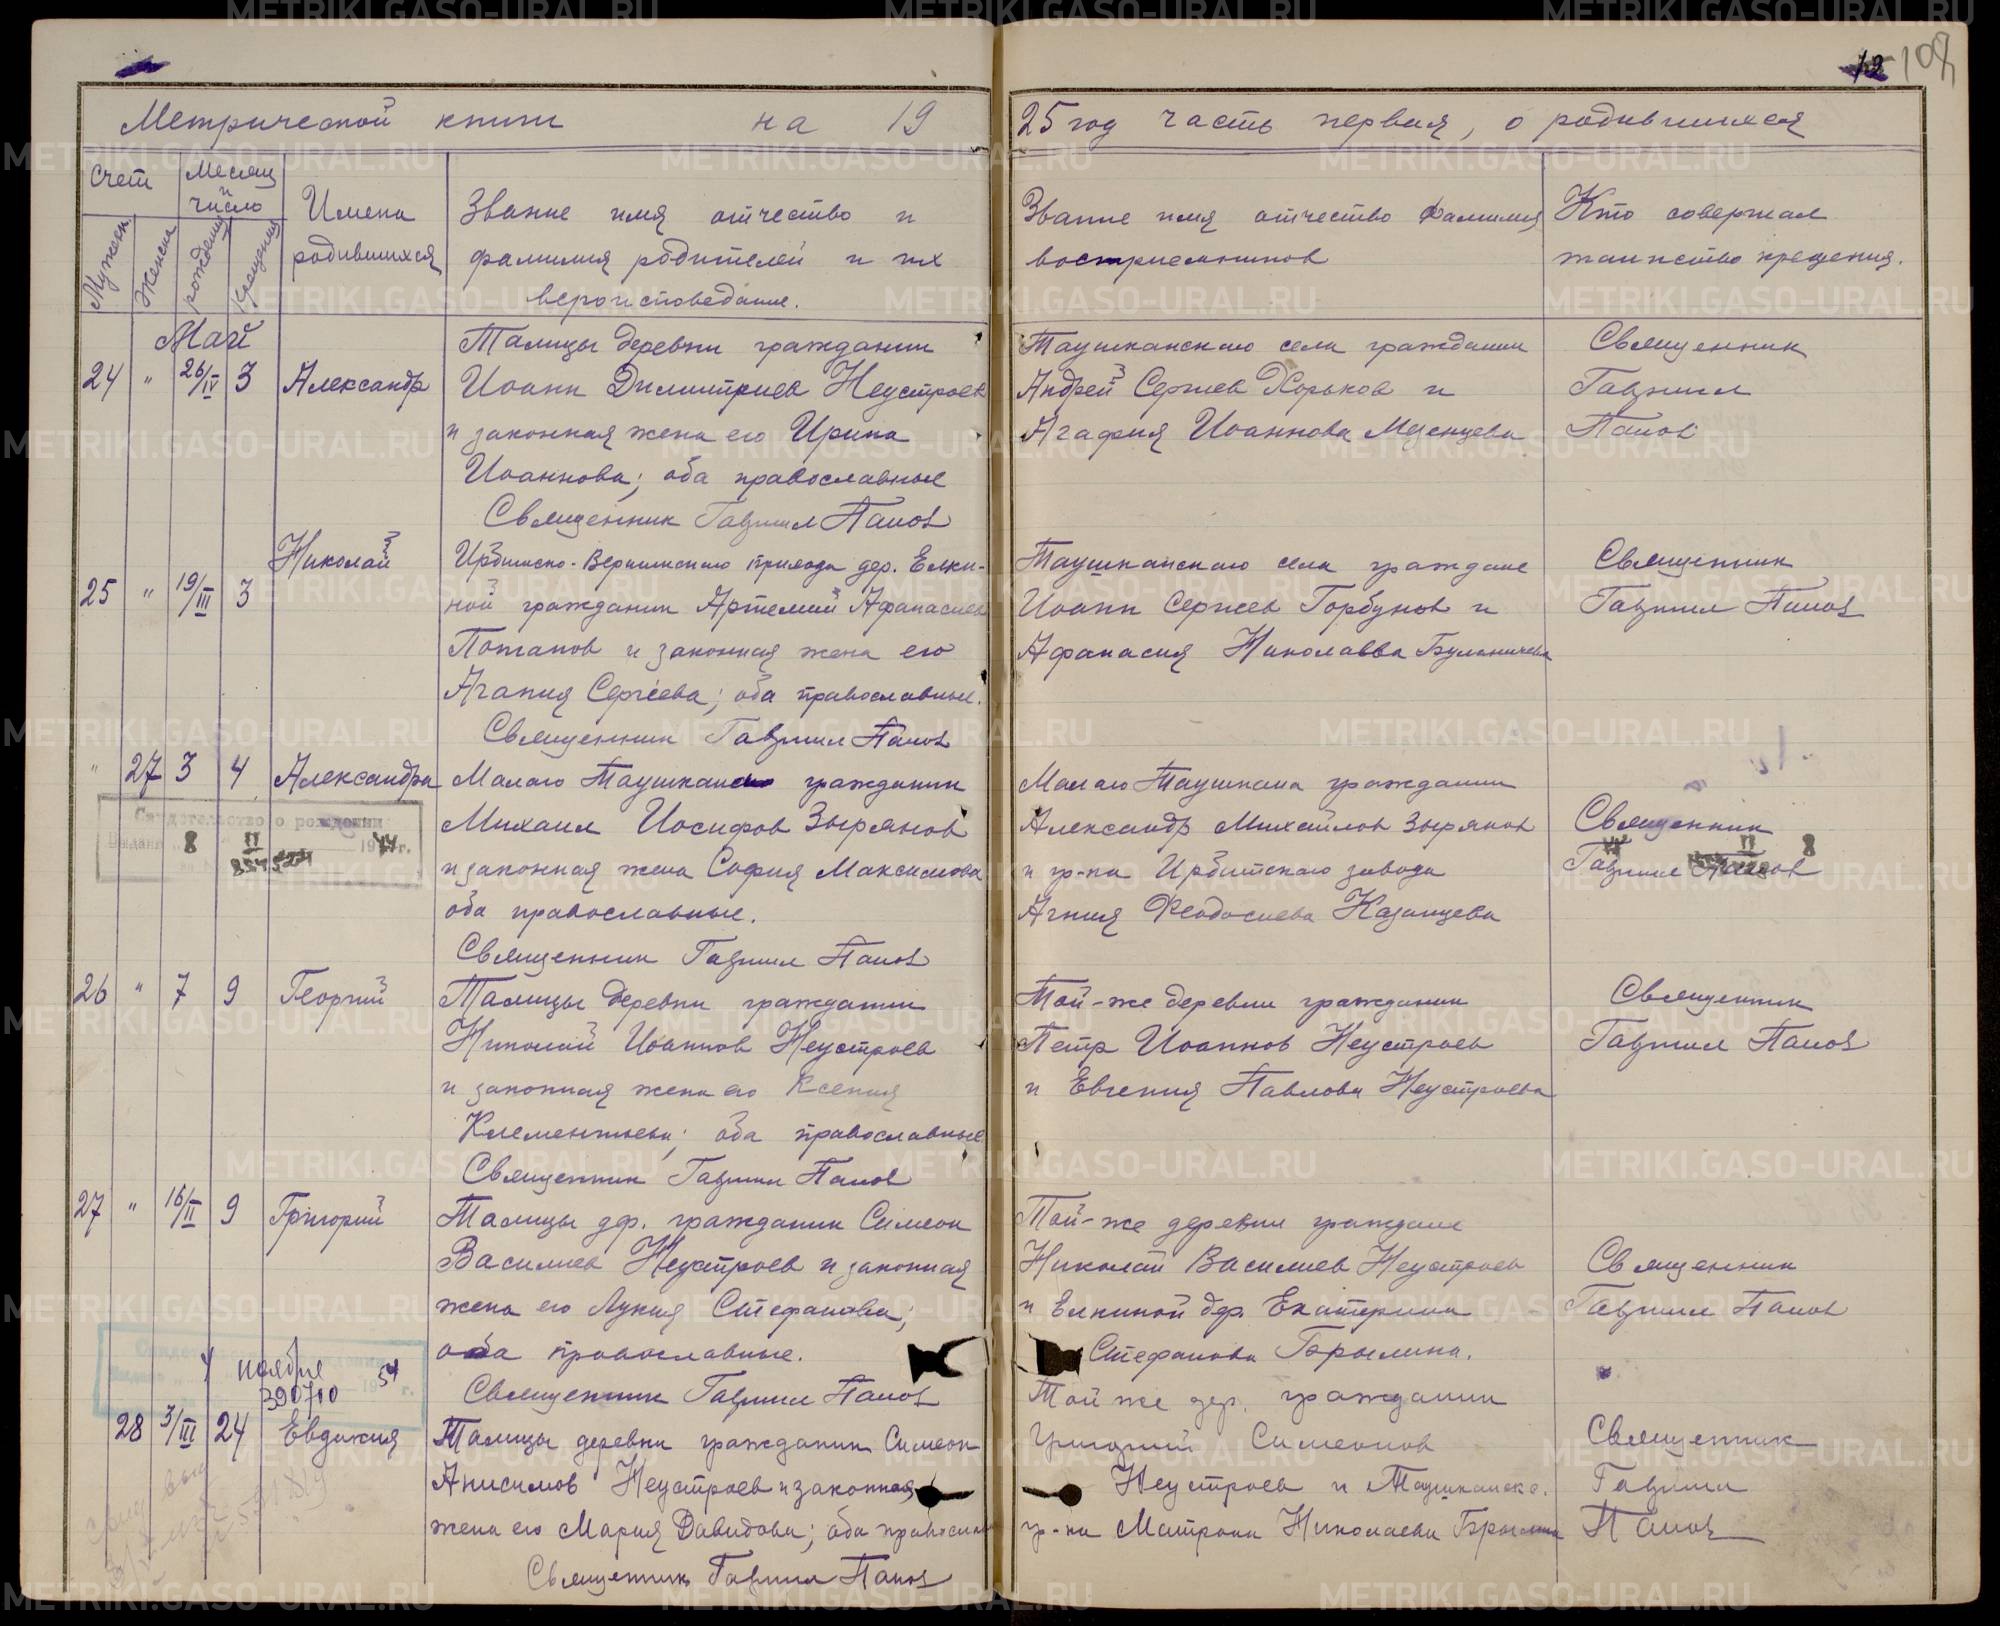 12 108
Метрической книги на 1925 год часть первая, о родившихся
Счет
Мужеск.
Женск.
Месяц и число
рождения
крещения
Имена родившихся
Звание имя отчество и
фамилия родителей и их
вероисповедание.
Звание имя отчество фамилия
восприемников
Кто совершал
таинство крещения.
Май
24 " 26/IV 3 Александр
Талицы деревни гражданин
Иоанн Димитриев Неустроев
и законная жена его Ирина
Иоаннова; оба православные
Священник Гавриил Попов
Таушканского села граждани
Андрей Сергиев Хорьков и
Агафия Иоаннова Мезенцева
Священник
Гавриил
Попов
25 " 19/III 3 Николай
Ирбитско-Вершинского прихода дер. Елки-
ной гражданин Артемий Афанасиев
Потапов и законная жена его
Агапия Сергеева; оба православные.
Священник Гавриил Попов
Таушканского села граждане
Иоанн Сергиев Горбунов и
Афанасия Николаева
Священник
Гавриил Попов
" 27 3 4 Александра
Малого Таушканско гражданин
Михаил Иосифов Зырянов
и законная жена София Максимова
оба православные.
Священник Гавриил Попов
Малого Таушкана гражданин
Александр Михайлов Зырянов
и гр-ка Ирбитского завода
Агния Феодосиева Казанцева
Священник
Гавриил Попов
Свидетельство о рождении
Выдано 8 II 1944 г.
26 " 7 9 Георгий
Талицы деревни гражданин
Николай Иоаннов Неустроев
и законная жена его Ксения
Клементьева; оба православные
Священник Гавриил Попов
Той-же деревни гражданин
Петр Иоаннов Неустроев
и Евгения Павлова Неустроева
Священник
Гавриил Попов
27 " 16/II 9 Григорий
Талицы дер. гражданин Симеон
Василиев Неустроев и законная
жена его Лукия Стефанова;
оба православные.
Священник Гавриил Попов
Той-же деревни граждане
Николай Василиев Неустроев
и Елкиной дер. Екатерина
Стефанова Брылина.
Священник
Гавриил Попов
4 ноября 54 г.
390710
28 3/III 24 Евдокия
Талицы деревни гражданин Симеон
Анисимов Неустроев и законная
жена его Мария Давидова; оба правосла
Священник Гавриил Попов
Той же дер. гражданин
Григорий Симеонов
Неустроев и Таушканско.
гр-ка Матрона Николаева Брылина
Священник
Гавриил
Попов
METRIKI.GASO-URAL.RU